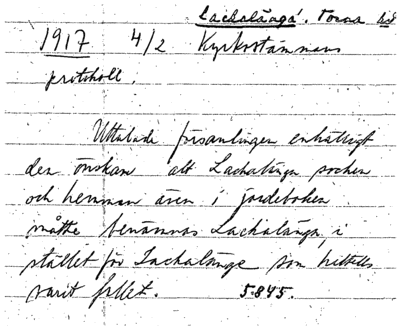 Lackalänga. Torna hd
1917 4/2 Kyrkostämmans
protokoll.
Uttalade församlingen enhälligt
den önskan att Lackalänga socken
och hemman även i jordeboken
måtte benämnas Lackalänga, i
stället för Lackalänge som hittills
varit fallet. 5.845.